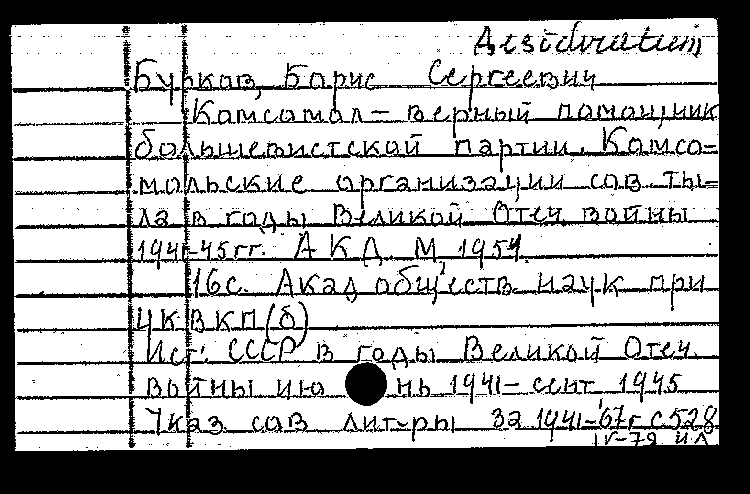 Desideratum
Бурков, Борис Сергеевич
Комсомол – верный помощник
большевистской партии. Комсо-
мольские организации сов. ты-
ла в годы Великой Отеч. войны
1941-45гг. АКД. М, 1951.
16с. Акад обществ наук при
ЦК ВКП(б)
Ист. СССР в годы Великой Отеч.
войны июнь 1941 – сент. 1945
Указ сов лит-ры за 1941-67г с.528
IV-79 ИЛ